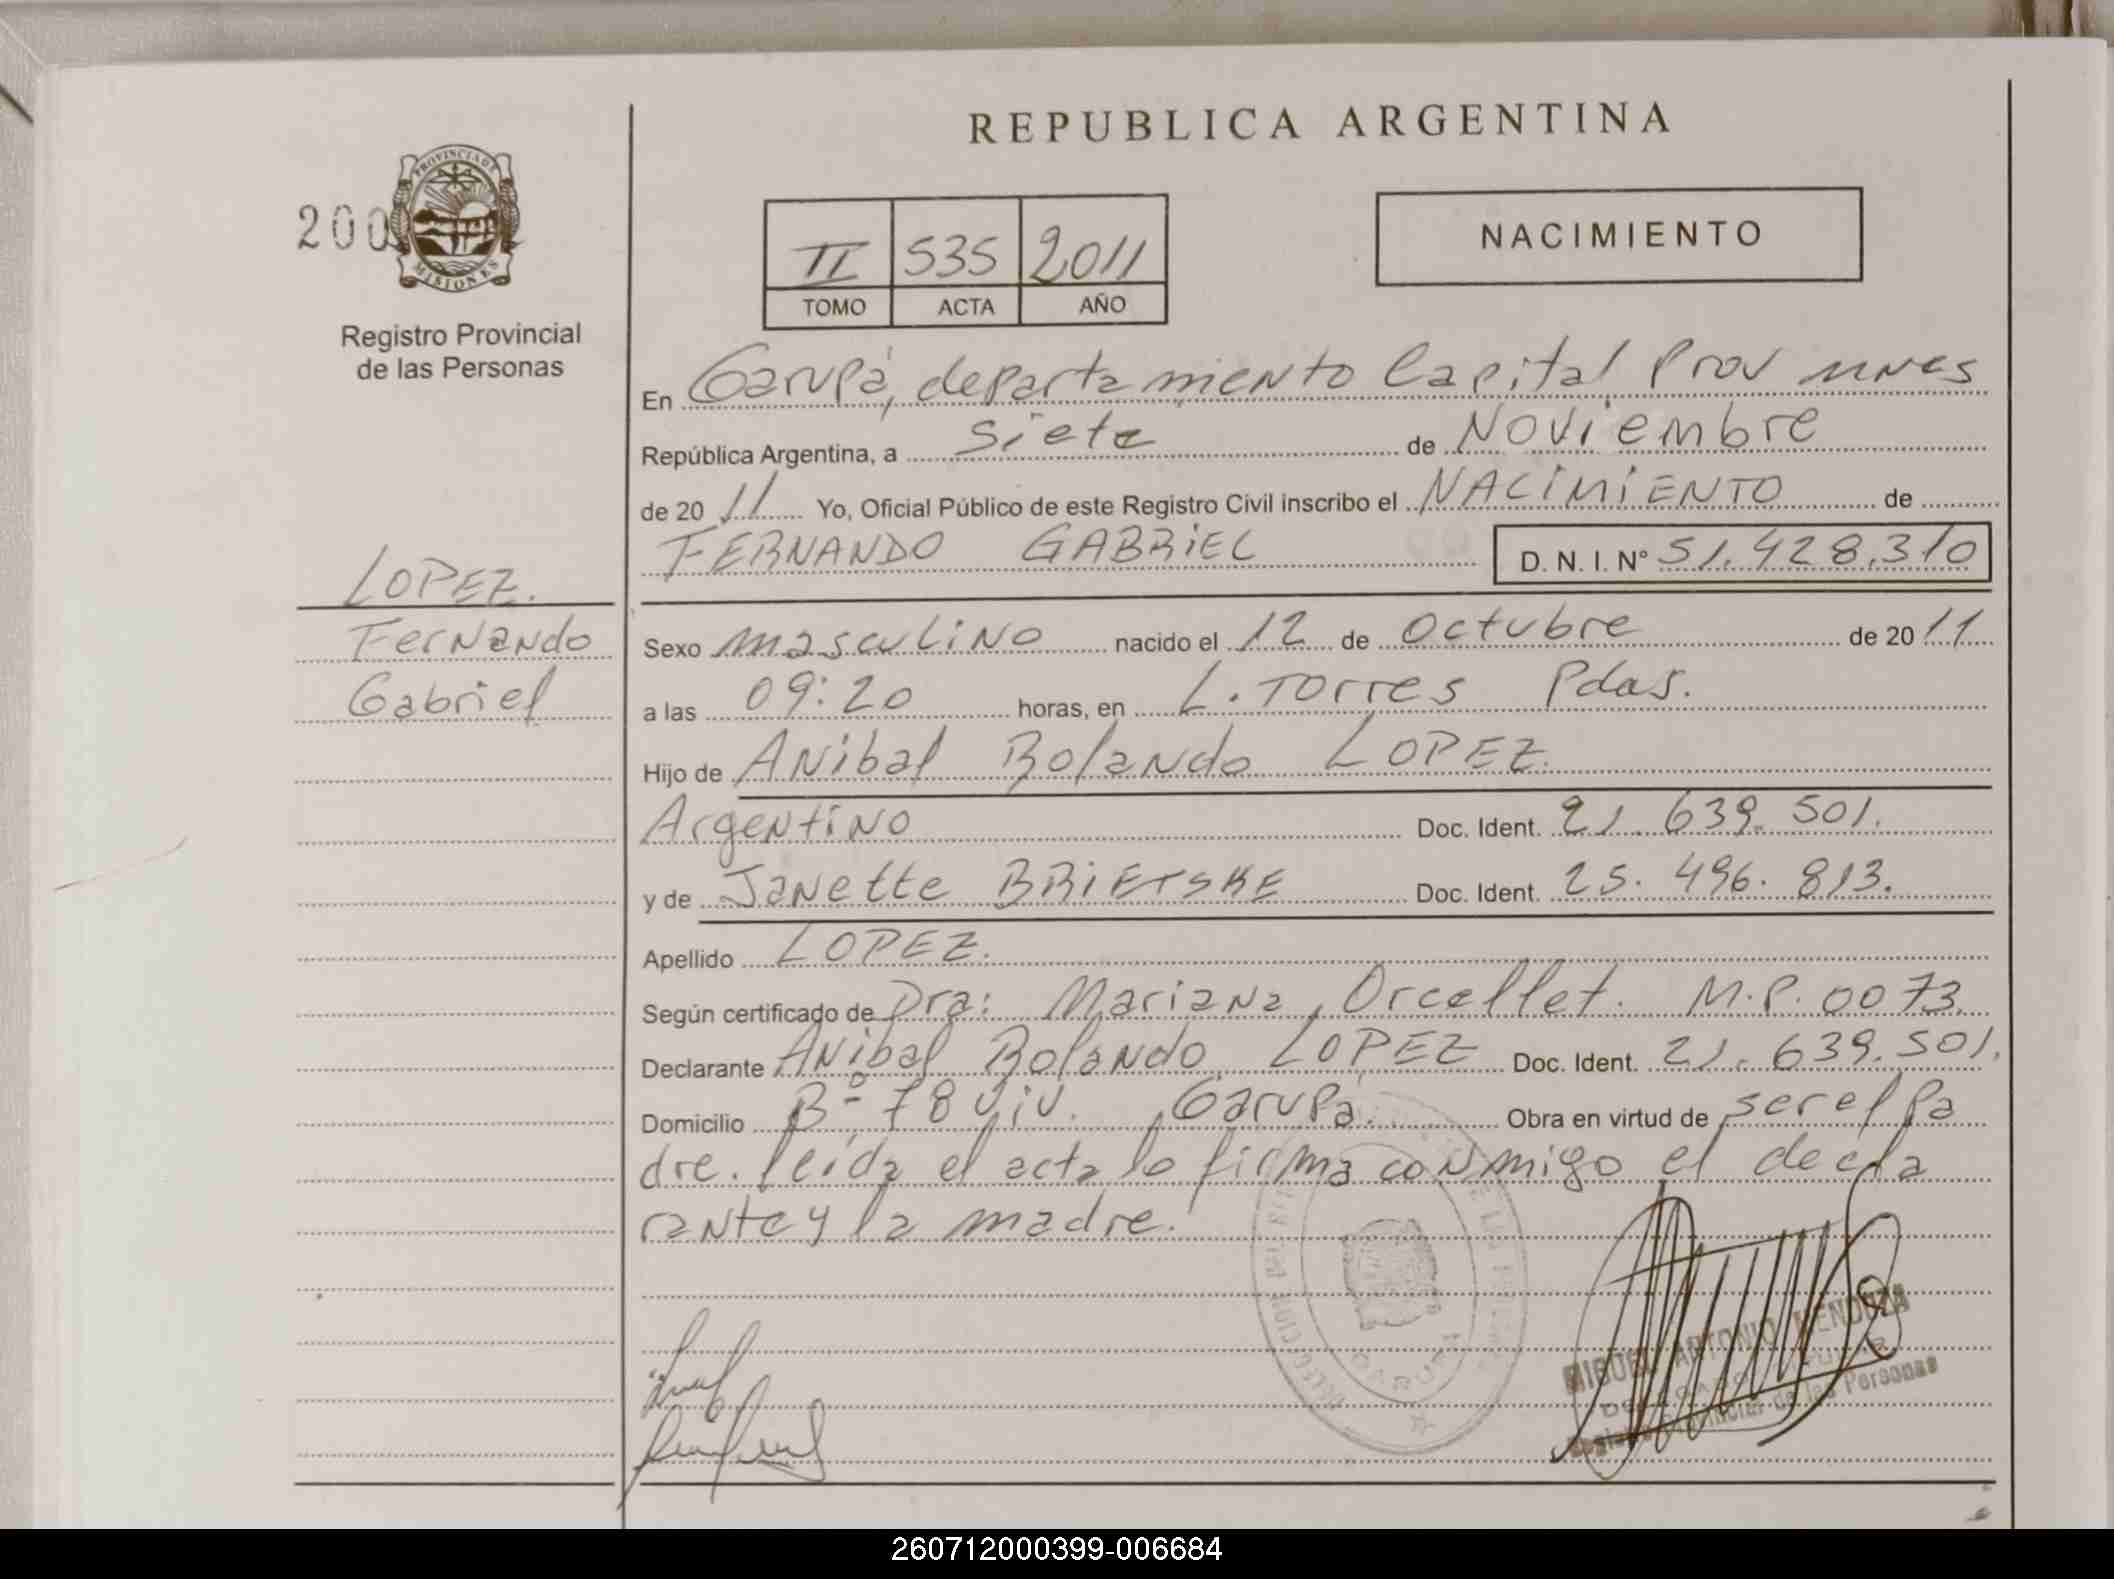 REPUBLICA ARGENTINA
200
PROVINCIA DE
MISIONES
Registro Provincial
de las Personas
II 535 2011
TOMO ACTA AÑO
NACIMIENTO
En Garupá, departamento Capital Prov mnes
República Argentina, a siete de Noviembre
de 2011 Yo, Oficial Público de este Registro Civil inscribo el NACIMIENTO de
FERNANDO GABRIEL D. N. I. Nº 51.428.310
LOPEZ.
Fernando
Gabriel
Sexo masculino nacido el 12 de octubre de 2011
a las 09:20 horas, en L. Torres Pdas.
Hijo de Anibal Rolando LOPEZ.
Argentino Doc. Ident. 21.639.501.
y de Janette BRIETSKE Doc. Ident. 25.496.813.
Apellido LOPEZ.
Según certificado de Dra: Mariana Orcellet. M.P. 0073.
Declarante Anibal Rolando LOPEZ Doc. Ident. 21.639.501.
Domicilio Bº 78 viv. Garupá. Obra en virtud de ser el pa
dre. leida el acta lo firma conmigo el decla
rante y la madre.
MIGUEL ANTONIO MENDOZA
DELEGADO TITULAR
Registro Provincial de las Personas
GARUPA
260712000399-006684